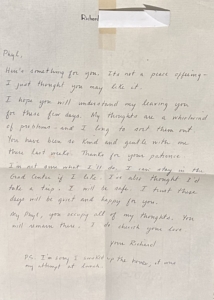 Richard
Phyl,
Here's something for you. Its not a peace offering—
I just thought you may like it.
I hope you will understand my leaving you
for these few days. My thoughts are a whirlwind
of problems - and I long to sort them out.
You have been so kind and gentle with me
these last weeks. Thanks for your patience
I'm not sure what I'll do. I can stay in the
Grad Center if I like. I've also thought I'd
take a trip. I will be safe. I trust these
days will be quiet and happy for you.
My Phyl, you occupy all of my thoughts. You
will remain there. I do cherish your love
your Richard
PS. I'm sorry I the roses, it was
my attempt at